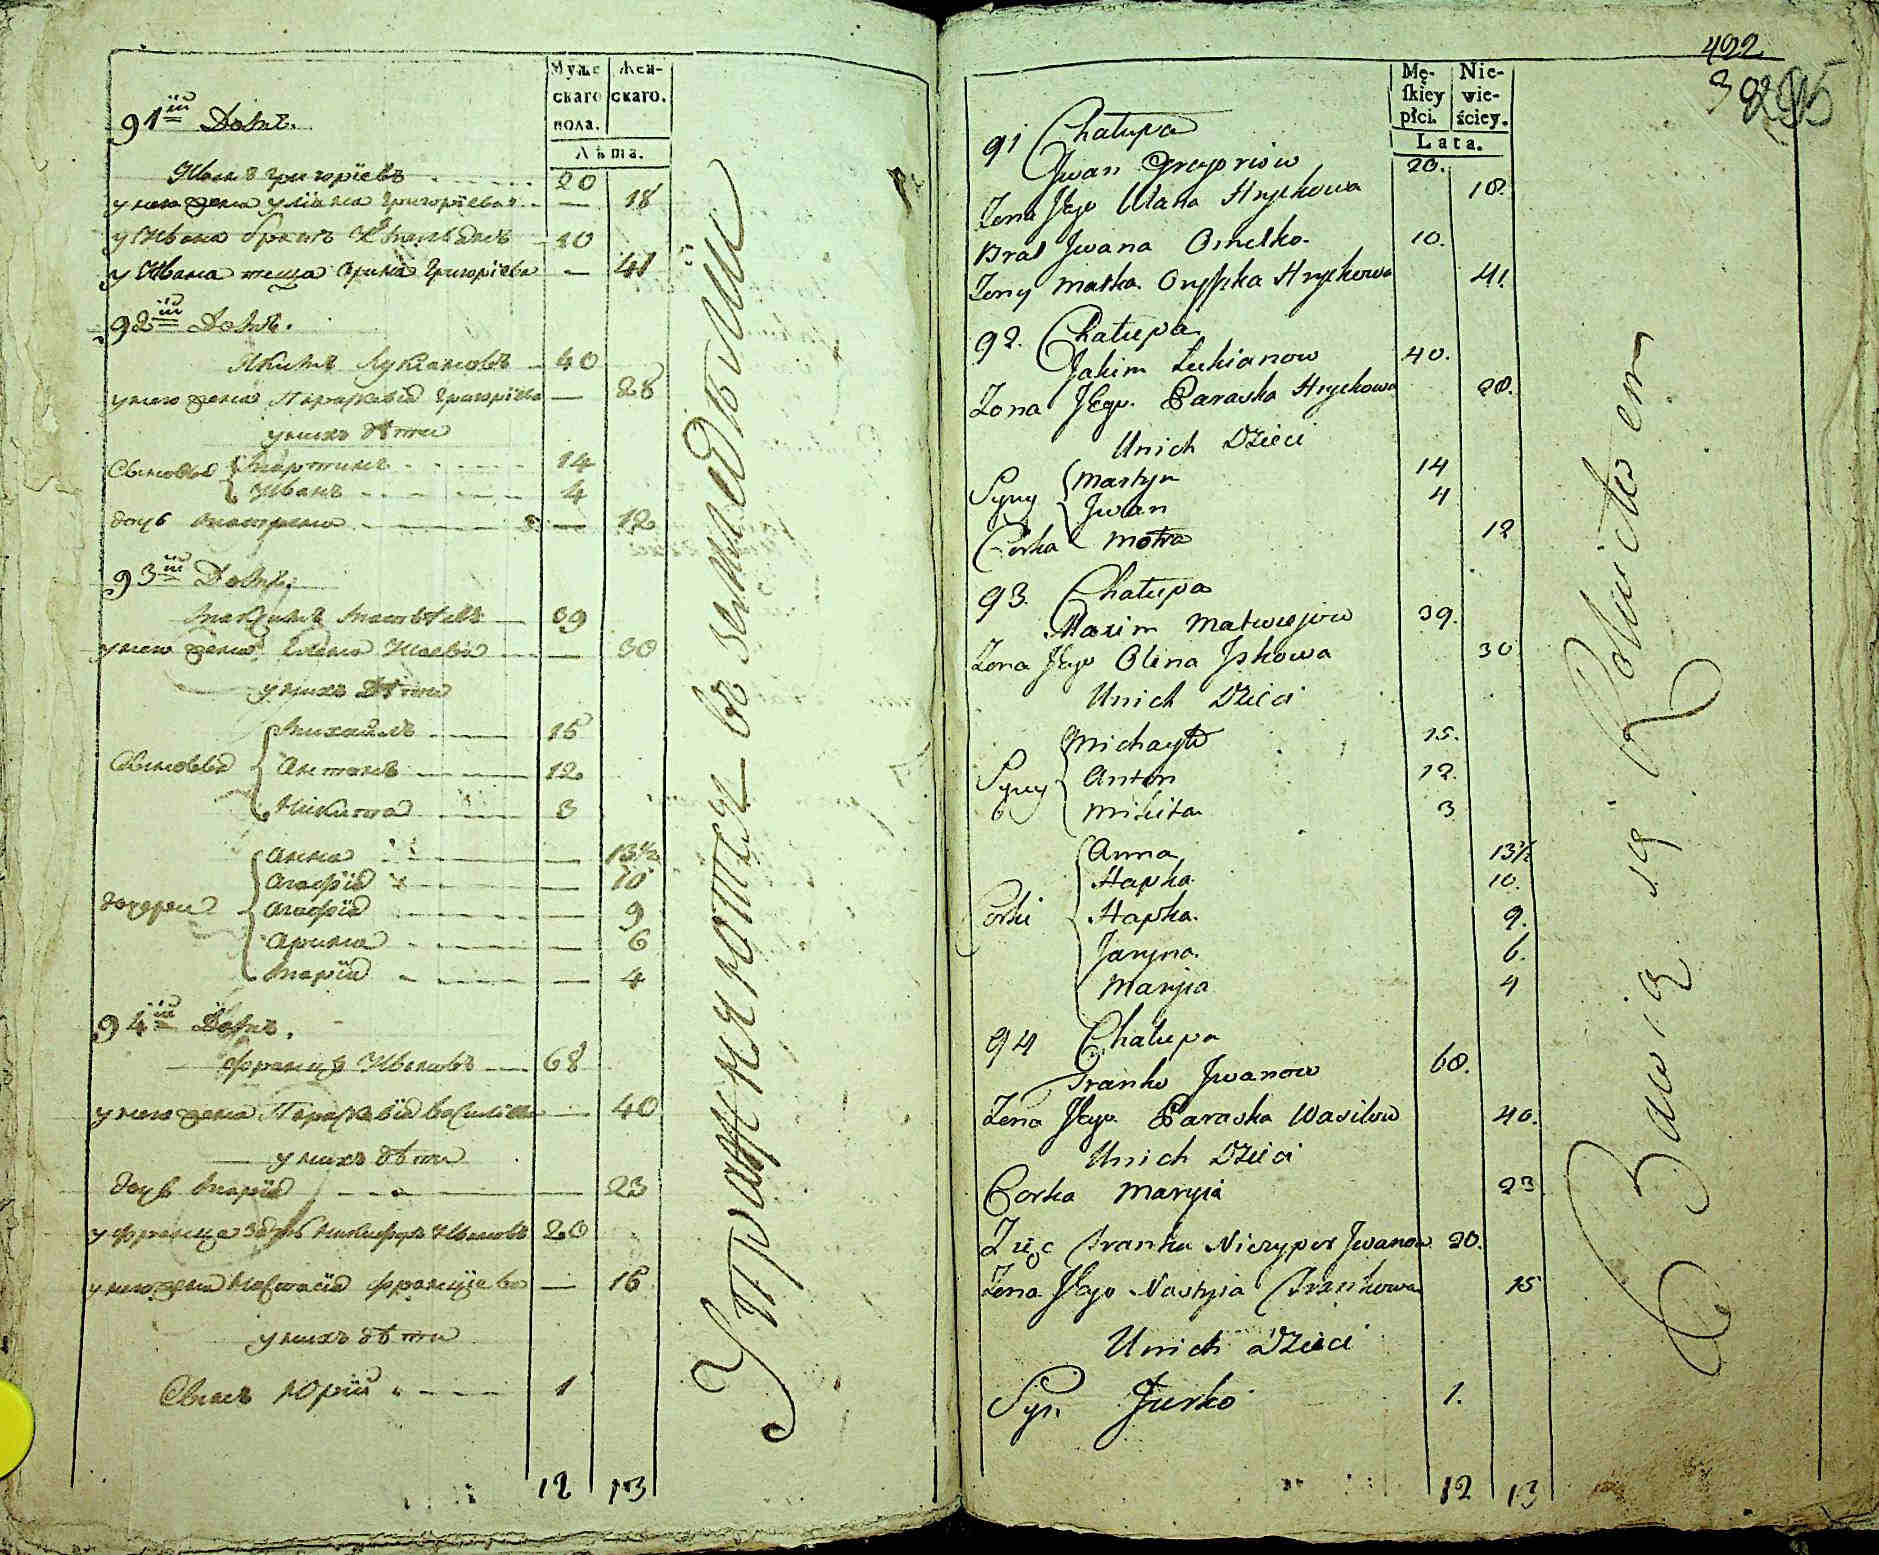 Муже
скаго
пола.
Жен-
скаго.
Лѣта.
91й Домъ.
Иванъ Григорїевъ 20
у него жена Улїана Григорїева — 18
у Ивана братъ 10
у Ивана теща Арина Григорїева — 41
92й Домъ.
Якимъ Лукїановъ 40
у него жена Параскавїя Григорїева — 28
у нихъ дѣти
Сыновья Мартинъ 14
Иванъ 4
дочь Матрена — 12
93й Домъ.
Максимъ Матвѣевъ 39
у него жена Елена — 30
у нихъ дѣти
Михайлъ 15
Сыновья Антонъ 12
Никита 3
Анна — 13½
Агафїя — 10
дочери Агафїя — 9
Арина — 6
Марїя — 4
94й Домъ.
Францъ Ивановъ 68
у него жена Параскавїя Василїева — 40
у нихъ дѣти
дочь Марїя — 23
у Франца зять Никифоръ Ивановъ 20
у него жена Настасїя Францова — 15
у нихъ дѣти
Сынъ Юрїй 1
12 13
Упражняются въ земледѣлии
422
Mę-
skiey
płci.
Nie-
wie-
ściey.
Lata.
91 Chałupa
Jwan Gregoriow 20.
Zona Jego Ulana Hryckowa 18.
Brat Jwana Omelko 10.
Zony Matka Oryszka Hryckowa 41.
92. Chałupa
Jakim Lukianow 40.
Zona Jego Paraska Hryckowa 28.
Unich Dzieci
Syny Martyn 14
Jwan 4
Corka Motra 12
93. Chałupa
Maxim Matwiejow 39.
Zona Jego Olena Jskowa 30
Unich Dzieci
Michayło 15.
Syny Anton 12.
Mikita 3
Anna 13½
Hapka 10.
Corki Hapka. 9.
Jaryna. 6.
Maryia 4
94 Chałupa
Franko Jwanow 68.
Zona Jego Paraska Wasilow 40.
Unich Dzieci
Corka Maryia 23
Zięc Franka Niczypor Jwanow 20.
Zona Jego Nastyia Frankowa 15
Unich Dzieci
Syn Jurko 1.
12 13
Bawią się Rolnictwem